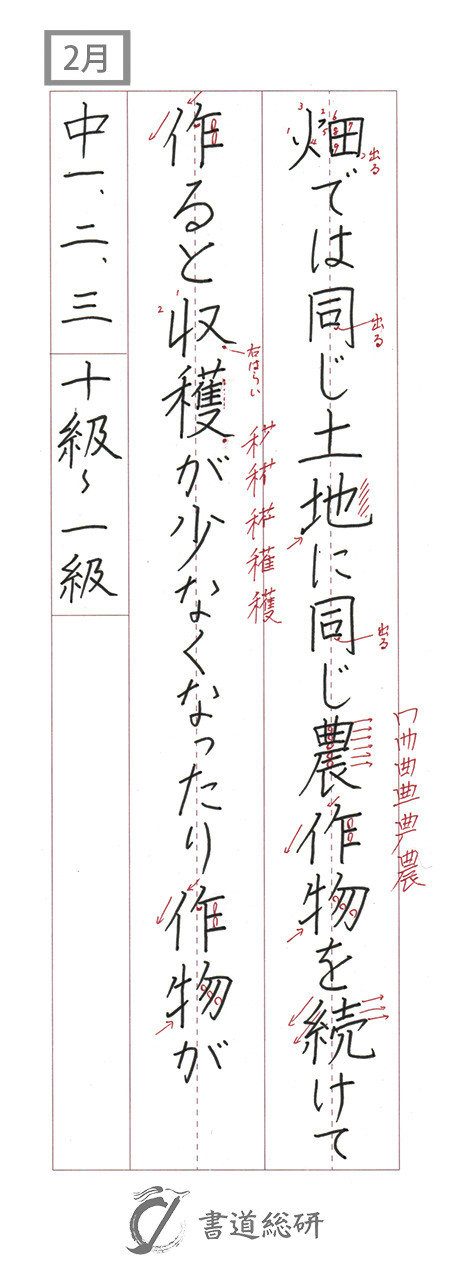 2月
畑では同じ土地に同じ農作物を続けて
作ると収穫が少なくなったり作物が
中一、二、三
十級〜一級
出る
出る
出る
右はらい
書道総研